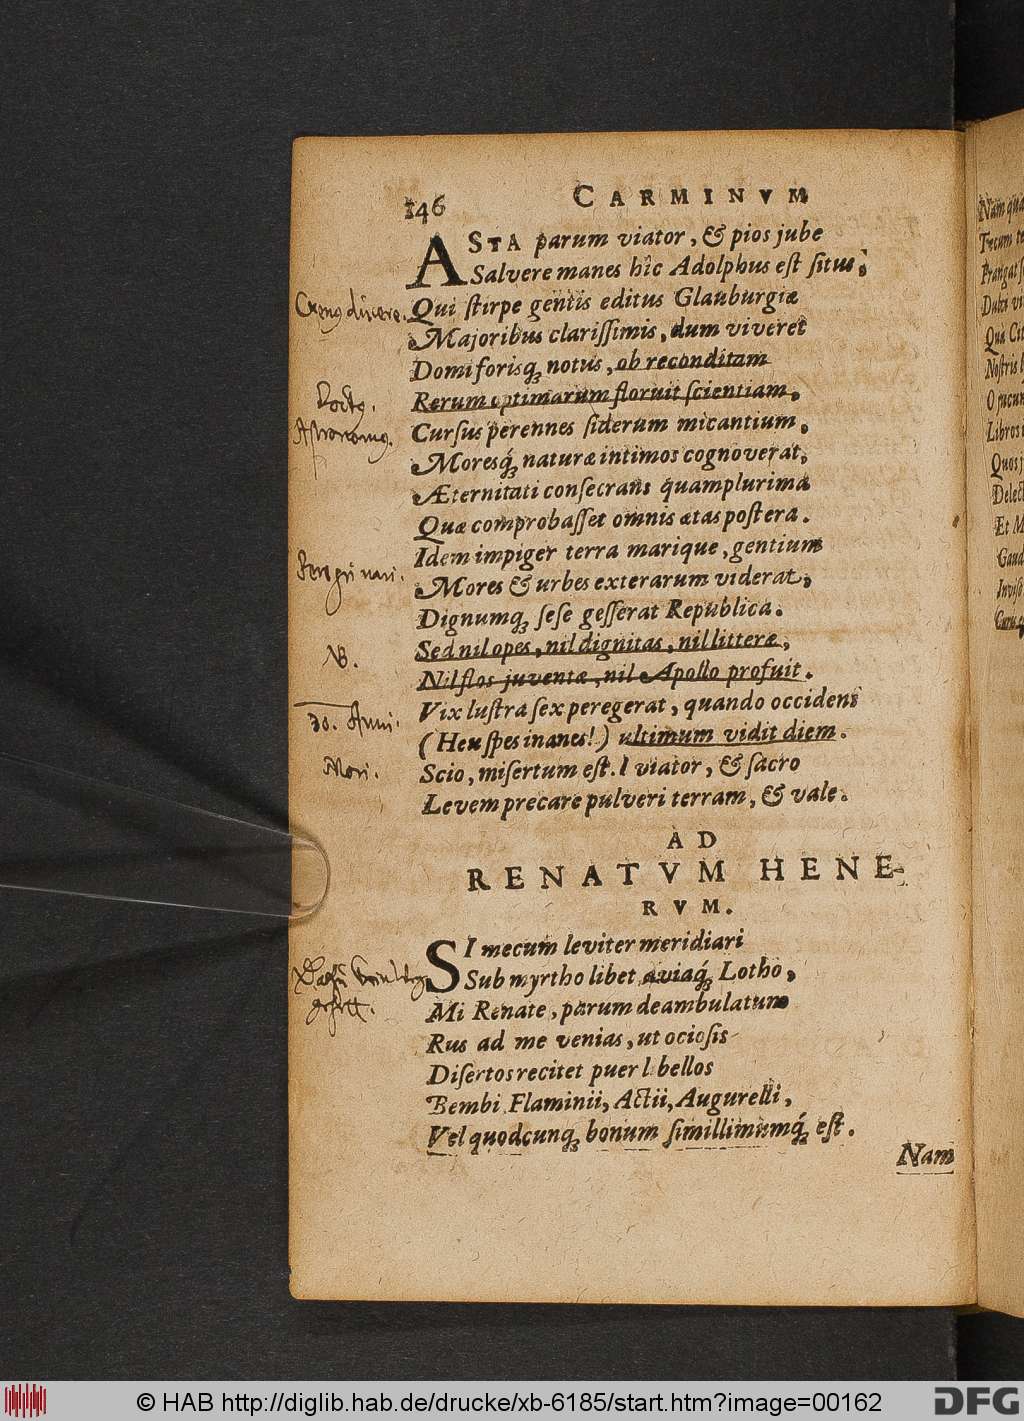 146 CARMINVM
ASTA parum viator, & pios jube
Salvere manes hîc Adolphus eſt ſitus;
Qui ſtirpe gentis editus Glauburgiæ
Majoribus clariſſimis, dum viveret
Domi foriſq́ꝫ notus, ob reconditam
Rerum optimarum floruit ſcientiam.
Aſtronomus.
Curſus perennes ſiderum micantium,
Moreſq́ꝫ naturæ intimos cognoverat,
Æternitati conſecrans quamplurima
Quæ comprobaſſet omnis ætas poſtera.
Idem impiger terra marique, gentium
Mores & urbes exterarum viderat,
Dignumqꝫ ſeſe geſſerat Republica.
NB.
Sed nil opes, nil dignitas, nil litteræ,
Nil flos juventæ, nil Apollo profuit.
30. Anni.
Vix luſtra ſex peregerat, quando occidens
(Heu ſpes inanes!) ultimum vidit diem.
Mori.
Scio, miſertum eſt. I viator, & ſacro
Levem precare pulveri terram, & vale.
AD
RENATVM HENE-
RVM.
SI mecum leviter meridiari
Sub myrtho libet aviaq́ꝫ Lotho,
Mi Renate, parum deambulatum
Rus ad me venias, ut ocioſis
Diſertos recitet puer libellos
Bembi Flaminii, Actii, Augurelli,
Vel quodcunqꝫ bonum ſimillimumq́ꝫ eſt.
Nam
Nam qua
Tecum te
Frangat ſ
Dubo vi
Qua Cit
Noſtris l
O jucun
Libros
Quos j
Delect
Et M
Gaud
Inviſ
© HAB http://diglib.hab.de/drucke/xb-6185/start.htm?image=00162
DFG